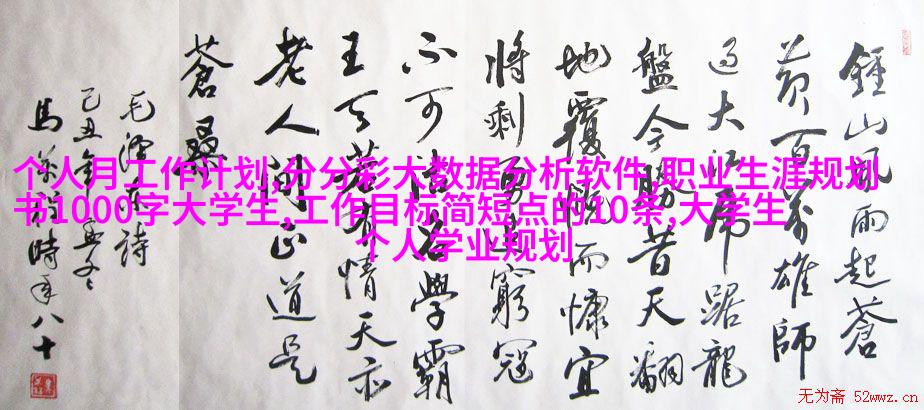 鍾山風雨起蒼
黃百萬雄師
過大江虎踞龍
盤今勝昔天翻
地覆慨而慷宜
將剩勇追窮寇
不可沽名學霸
王天若有情天亦
老人間正道是
蒼桑
毛澤東詩
己丑年孟冬
馬 時年八十
个人月工作计划,分分彩大数据分析软件,职业生涯规划
书1000字大学生,工作目标简短点的10条,大学生
个人学业规划
无为斋 52wwz.cn